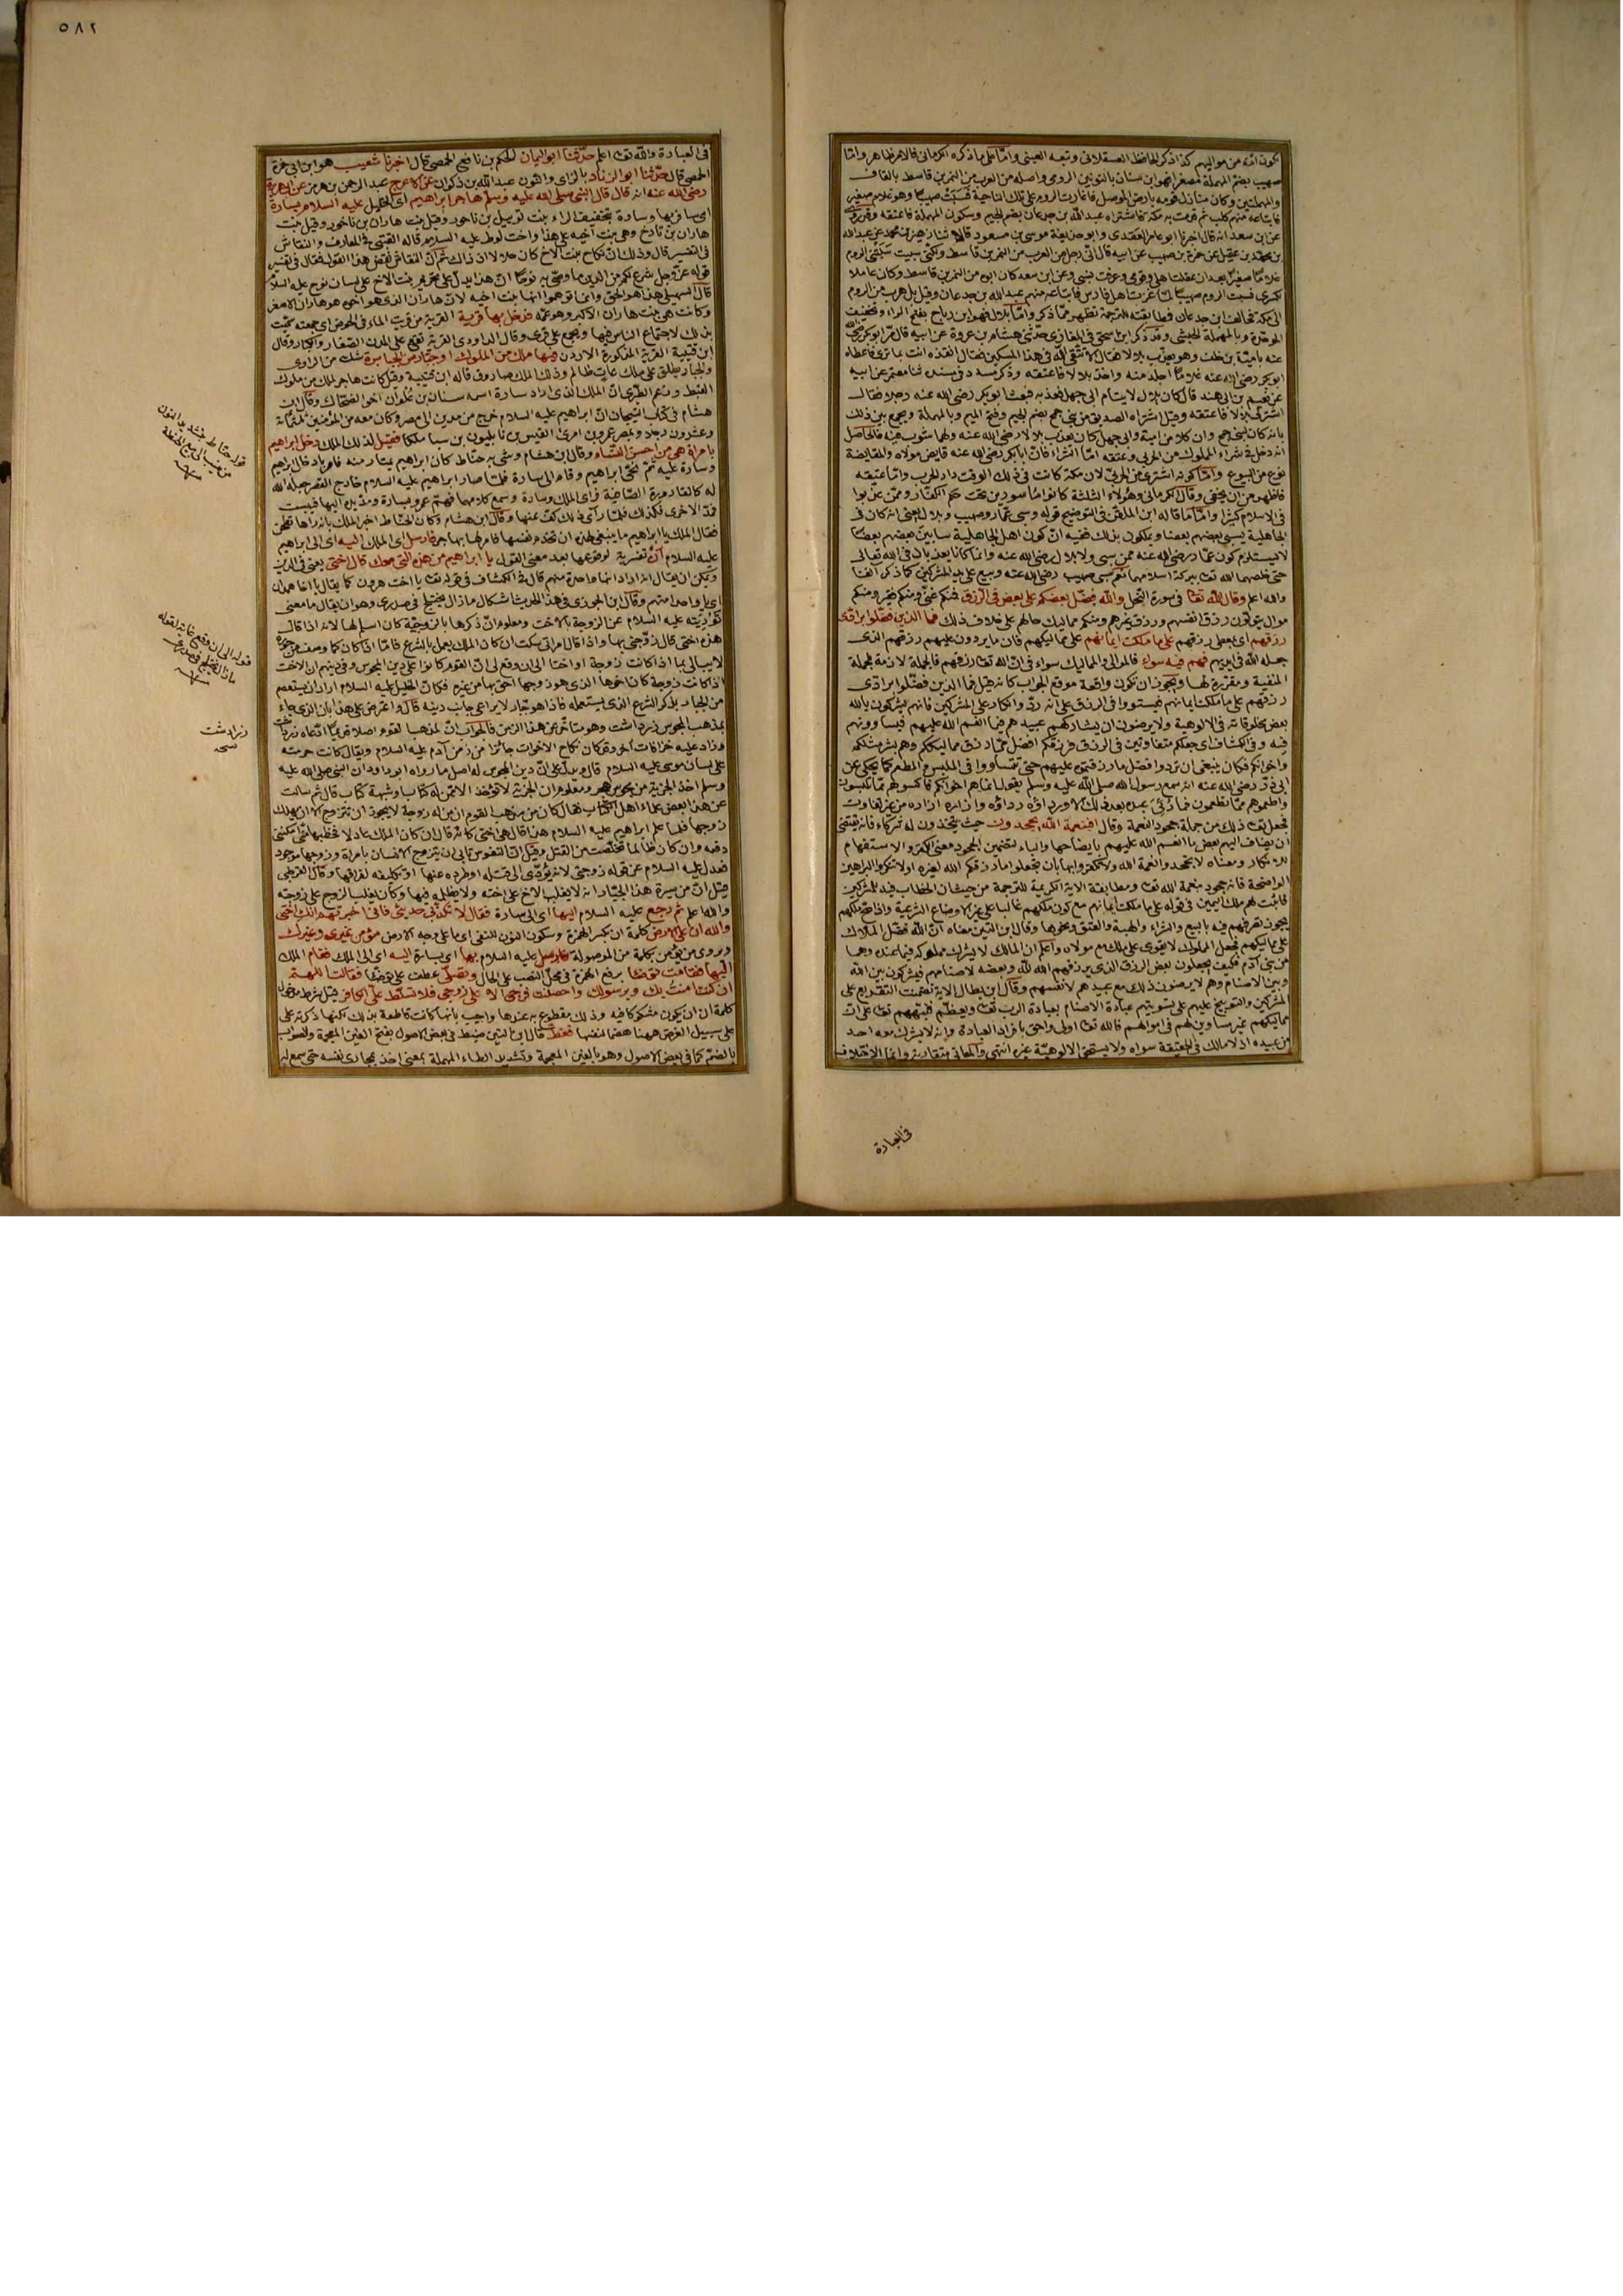 يكون امه من مواليهم كذا ذكر الحافظ العسقلاني وتبعه العيني واما على ما ذكره الكرماني فالامر ظاهر واما
صهيب بضم المهملة مصغرا فهو ابن سنان بالنونين الرومي واصله من العرب من النمر بن قاسط بالقاف
والمهملتين وكان منازل قومه بارض الموصل فاغارت الروم على تلك الناحية فسبت صهيبا وهو غلام صغير
فابتاعه منهم كلب ثم قدمت به مكة فاشتراه عبد الله بن جدعان بضم الجيم وسكون المهملة فاعتقه
عن ابن سعد انه قال اخبرنا ابو عامر العقدي وابو حذيفة موسى بن مسعود قالا ثنا زهير بن محمد عن عبد الله
بن محمد بن عقيل عن حمزة بن صهيب عن ابيه قال اني رجل من العرب من النمر بن قاسط ولكني سبيت سبتني الروم
غلاما صغيرا بعد ان عقلت اهلي وقومي وعرفت نسبي وعن ابن سعد كان ابي من النمر بن قاسط وكان عاملا
لكسرى فسبت الروم صهيبا لما غزت اهل فارس فابتاعه منهم عبد الله بن جدعان وقيل بل هرب من الروم
الى مكة فحالف ابن جدعان فطابقته للترجمة تظهر مما ذكر واما بلال فهو ابن رباح بفتح الراء وتخفيف
الموحدة وبالمهملة الحبشي وقد ذكر ابن اسحق في المغازي حدثني هشام بن عروة عن ابيه قال مر ابو بكر رضي الله
عنه بامية بن خلف وهو يعذب بلالا فقال الا تتقي الله في هذا المسكين فقال انقذه انت بما ترى فاعطاه
ابو بكر رضي الله عنه غلاما اجلد منه واخذ بلالا فاعتقه وذكر مسدد في مسنده ثنا معتمر عن ابيه
عن نعيم بن ابي هند قال كان بلال لايتام ابي جهل فعذبه فبعث ابو بكر رضي الله عنه رجلا فقال
اشتر لي بلالا فاعتقه وقيل اشتراه الصديق من بني جمح بضم الجيم وفتح الميم وبالمهملة ويجمع بين ذلك
بانه كان لبني جمح وان كلا من امية وابي جهل كان يعذب بلالا رضي الله عنه ولهما شوب فيه فالحاصل
انه دخل في شراء المملوك من الحربي وعتقه اما الشراء فان ابا بكر رضي الله عنه قايض مولاه والمقايضة
نوع من البيوع واما كونه اشترى من الحربي لان مكة كانت في ذلك الوقت دار الحرب واما عتقه
فاظهر من ان يخفى وقال الكرماني وهؤلاء الثلثة كانوا ماسورين تحت حكم الكفار وممن عذبوا
في الاسلام كثيرا واما ما قاله ابن الملقن في التوضيح قوله وسبي عمار وصهيب وبلال يعني انه كان في
الجاهلية يسبي بعضهم بعضا ويملكون بذلك ففيه ان كون اهل الجاهلية سابين بعضهم بعضا
لا يستلزم كون عمار رضي الله عنه ممن سبي ولا بلال رضي الله عنه وانما كانا يعذبان في الله تعالى
حتى خلصهما الله تعا ببركة اسلامهما نعم سبي صهيب رضي الله عنه وبيع على يد المشركين كما ذكر آنفا
والله اعلم وقال الله تعا في سورة النحل والله فضل بعضكم على بعض في الرزق فمنكم غني ومنكم فقير ومنكم
موال يتولون رزق انفسهم ورزق غيرهم ومنكم مماليك حالهم على خلاف ذلك فما الذين فضلوا برادي
رزقهم اي بمعطي رزقهم على ما ملكت ايمانهم على مماليكهم فان ما يردون عليهم رزقهم الذي
جعله الله في ايديهم فهم فيه سواء فالموالي والمماليك سواء في ان الله تعا رزقهم فالجملة لازمة للجملة
المنفية ومقررة لها ويجوز ان تكون واقعة موقع الجواب كانه قيل فما الذين فضلوا برادي
رزقهم على ما ملكت ايمانهم فيستووا في الرزق على انه رد وانكار على المشركين فانهم يشركون بالله
بعض مخلوقاته في الالوهية ولا يرضون ان يشاركهم عبيدهم فيما انعم الله عليهم فيساوونهم
فيه وفي الكشاف اي جعلكم متفاوتين في الرزق فرزقكم افضل مما رزق مماليككم وهم بشر مثلكم
واخوانكم فكان ينبغي ان تردوا فضل ما رزقتموه عليهم حتى تتساووا في الملبس والمطعم كما يحكى عن
ابي ذر رضي الله عنه انه سمع رسول الله صلى الله عليه وسلم يقول انما هم اخوانكم فاكسوهم مما تلبسون
واطعموهم مما تطعمون فما رئي عبده بعد ذلك الا ورداؤه رداؤه وازاره ازاره من غير تفاوت
فجعل تعا ذلك من جملة جحود النعمة وقال افبنعمة الله يجحدون حيث يتخذون له شركاء فانه يقتضي
ان يضاف اليهم بعض ما انعم الله عليهم والباء لتضمين الجحود معنى الكفر والاستفهام
للانكار ومعناه لا تجحدوا نعمة الله ولا تكفروا بها بان تجعلوا ما رزقكم الله لغيره اولا تنكروا البراهين
الواضحة فانه جحود بنعمة الله تعا ومطابقة الاية الكريمة للترجمة من حيث ان الخطاب فيه للمشركين
فاثبت لهم ملك اليمين في قوله على ما ملكت ايمانهم مع كون ملكهم غالبا على غير الاوضاع الشرعية واذا صح ملكهم
يجوز تصرفهم فيه بالبيع والشراء والهبة والعتق ونحوها وقال ابن التين معناه ان الله فضل الملاك
على مماليكهم فجعل المملوك لا يقوى على ملك مع مولاه واعلم ان المالك لا يشرك مملوكه فيما عنده وهما
من بني آدم فكيف يجعلون بعض الرزق الذي يرزقهم الله لله وبعضه لاصنامهم فيشركون بين الله
وبين الاصنام وهم لا يرضون ذلك مع عبيدهم لانفسهم وقال ابن بطال الاية تضمنت التقريع على
المشركين والتوبيخ عليهم على تسويتهم عبادة الاصنام بعبادة الرب تعا وتعظم فنبههم تعا على ان
مماليكهم غير مساوين لهم في اموالهم فالله تعا اولى واحق بافراد العبادة وانه لا يشرك معه احد
من عبيده اذ لا مالك في الحقيقة سواه ولا يستحق الالوهية غيره انتهى والمعاني متقاربة وانما الاختلاف
في العبارة
٥٨٢
في العبارة والله تعا اعلم حدثنا ابو اليمان الحكم بن نافع الحمصي قال اخبرنا شعيب هو ابن ابي حمزة
الحمصي قال حدثنا ابو الزناد بالزاي والنون عبد الله بن ذكوان عن الاعرج عبد الرحمن بن هرمز عن ابي هريرة
رضي الله عنه انه قال قال النبي صلى الله عليه وسلم هاجر ابراهيم اي الخليل عليه السلام بسارة
اي سافر بها وسارة بتخفيف الراء بنت توبيل بن ناحور وقيل بنت هاران بن ناخور وقيل بنت
هاران بن تارخ وهي بنت اخيه على هذا واخت لوط عليه السلام قاله القتبي في المعارف والنقاش
في التفسير قال وذلك ان نكاح بنت الاخ كان حلالا اذ ذاك ثم ان النقاش نقض هذا القول فقال في تفسير
قوله عز وجل شرع لكم من الدين ما وصى به نوحا ان هذا يدل على تحريم بنت الاخ على لسان نوح عليه السلام
قال السهيلي هذا هو الحق وانما توهموا انها بنت اخيه لان هاران الذي هو اخوه هو هاران الاصغر
وكانت هي بنت هاران الاكبر وهو عمه فدخل بها قرية القرية من قريت الماء في الحوض اي جمعته سميت
بذلك لاجتماع الناس فيها ويجمع على قرى وقال الداودي القرية تقع على المدن الصغار والكبار وقال
ابن قتيبة القرية المذكورة الاردن فيها ملك من الملوك او جبار من الجبابرة شك من الراوي
والجبار يطلق على ملك عات ظالم وذلك الملك صادوق قاله ابن قتيبة وقيل كانت هاجر لملك من ملوك
القبط وزعم الطبري ان الملك الذي اراد سارة اسمه سنان بن علوان اخو الضحاك وقال ابن
هشام في كتاب التيجان ان ابراهيم عليه السلام خرج من مدين الى مصر وكان معه من المؤمنين ثلثمائة
وعشرون رجلا وبمصر عمرو بن امرئ القيس بن نابليون بن سبا ملكا فقيل لذلك الملك دخل ابراهيم
بامراة هي من احسن النساء وقال ابن هشام وشى به حناط كان ابراهيم يمتار منه فامر بادخال ابراهيم
وسارة عليه ثم نحى ابراهيم وقام الى سارة فلما صار ابراهيم عليه السلام خارج القصر جعله الله
له كالقارورة الصافية فراى الملك وسارة وسمع كلامهما فهم عمرو بسارة ومد يده اليها فيبست
فمد الاخرى فكذلك فلما راى ذلك كف عنها وقال ابن هشام وكان الحناط اخبر الملك بانه راها تطحن
فقال الملك يا ابراهيم ما ينبغي لهذه ان تخدم نفسها فامر لها بهاجر فارسل اي الملك اليه اي الى ابراهيم
عليه السلام ان تفسيرية لوقوعها بعد معنى القول يا ابراهيم من هذه التي معك قال اختي يعني في الدين
ويمكن ان يقال انه اراد انها واحدة منهم قال في الكشاف في قوله تعا يا اخت هرون كما يقال يا اخا همدان
اي يا واحدا منهم وقال ابن الجوزي في هذا الحديث اشكال ما زال يختلج في صدري وهو ان يقال ما معنى
توريته عليه السلام عن الزوجة بالاخت ومعلوم ان ذكرها بالزوجية كان اسلم لها لانه اذا قال
هذه اختي قال زوجني بها واذا قال امراتي سكت ان كان الملك يعمل بالشرع فاما اذا كان كما وصف من جوره
لا يبالي بما اذا كانت زوجة او اختا الى ان وقع لي ان القوم كانوا على دين المجوس وفي دينهم ان الاخت
اذا كانت زوجة كان اخوها الذي هو زوجها احق بها من غيره فكان الخليل عليه السلام اراد ان يستعصم
من الجبار بذكر الشرع الذي يستعمله فاذا هو جبار لا يراعي جانب دينه قال واعترض على هذا بان الذي جاء
بمذهب المجوس زرداشت وهو متاخر عن هذا الزمن فالجواب ان لمذهب القوم اصلا قديما ادعاه زرداشت
وزاد عليه خرافات اخر وقد كان نكاح الاخوات جائزا من زمن آدم عليه السلام ويقال كانت حرمته
على لسان موسى عليه السلام قال ويدل على ان دين المجوس له اصل ما رواه ابو داود ان النبي صلى الله عليه
وسلم اخذ الجزية من مجوس هجر ومعلوم ان الجزية لا تؤخذ الا ممن له كتاب او شبهة كتاب قال ثم سالت
عن هذا بعض علماء اهل الكتاب فقال كان من مذهب القوم ان من له زوجة لا يجوز ان تتزوج الا ان يهلك
زوجها فلما علم ابراهيم عليه السلام هذا قال هي اختي كانه قال ان كان الملك عادلا فخطبها مني يمكنني
دفعه وان كان ظالما تخلصت من القتل وقيل ان النفوس تابى ان يتزوج الانسان بامراة وزوجها موجود
فعدل عليه السلام عن قوله زوجتي لانه يؤدي الى قتله او طرده عنها او تكليفه لفراقها وقال القرطبي
قيل ان من سيرة هذا الجبار انه لا يغلب الاخ على اخته ولا يظلمه فيها وكان يغلب الزوج على زوجته
والله اعلم ثم رجع عليه السلام اليها اي الى سارة فقال لا تكذبي حديثي فاني اخبرتهم انك اختي
والله ان على الارض كلمة ان بكسر الهمزة وسكون النون للنفي اي ما على وجه الارض مؤمن غيري وغيرك
ويروى من يؤمن بكلمة من الموصولة فارسل عليه السلام بها اي بسارة اليه اي الى الملك فقام الملك
اليها فقامت توضا برفع الهمزة في محل النصب على الحال وتصلي عطف على توضا فقالت اللهم
ان كنت امنت بك وبرسولك واحصنت فرجي الا على زوجي فلا تسلط علي الكافر قيل شرط مدخول
كلمة ان ان يكون مشكوكا فيه وذلك مقطوع به عندها واجيب بانها كانت قاطعة بذلك لكنها ذكرته على
سبيل الفرض ههنا هضما لنفسها فغط قال ابن التين ضبط في بعض الاصول بفتح الغين المعجمة والصواب
بالضم كما في بعض الاصول وهو بالغين المعجمة وتشديد الطاء المهملة بمعنى اخذ بمجاري نفسه حتى سمع له
قوله حناط بتشديد النون
من نسب الى بيع الحنطة
منه
قوله الى ان وقع غاية لقوله
ما زال يختلج في صدري
منه
زرادشت
نسخه